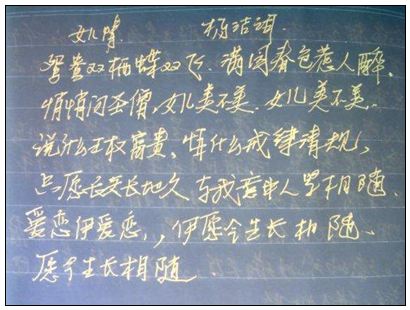 女儿情 杨洁词
鸳鸯双栖蝶双飞、满园春色惹人醉.
悄悄问圣僧,女儿美不美.女儿美不美.
说什么王权富贵,怕什么戒律清规,
只愿天长地久 与我意中人紧相随.
爱恋伊爱恋,,伊愿今生长相随、
愿今生长相随